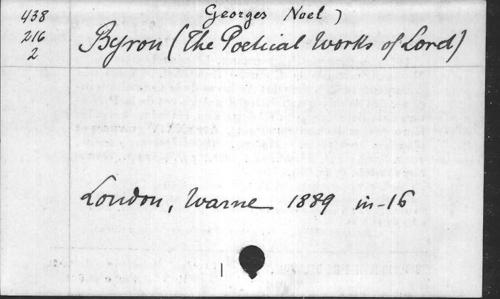 438
216
2
Georges Noel)
Byron (The Poetical Works of Lord)
London, Warne 1889 in-16